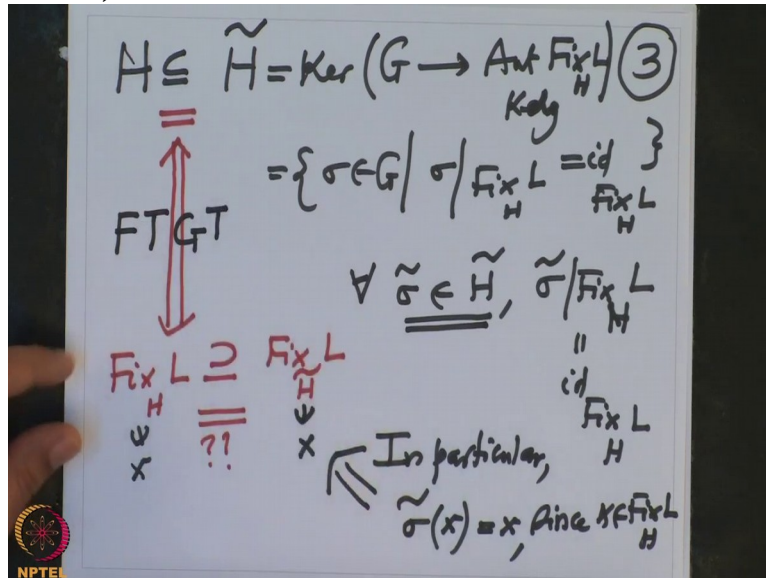 H ⊆ H̃ = Ker (G ⟶ Aut Fix_H L) ③
K-alg
= { σ ∈ G | σ | Fix_H L = id Fix_H L }
FTGT
∀ σ̃ ∈ H̃, σ̃ | Fix_H L
=
id Fix_H L
Fix_H L ⊇ Fix_H̃ L
= ??
x x
In particular,
σ̃(x) = x, since x ∈ Fix_H L
NPTEL